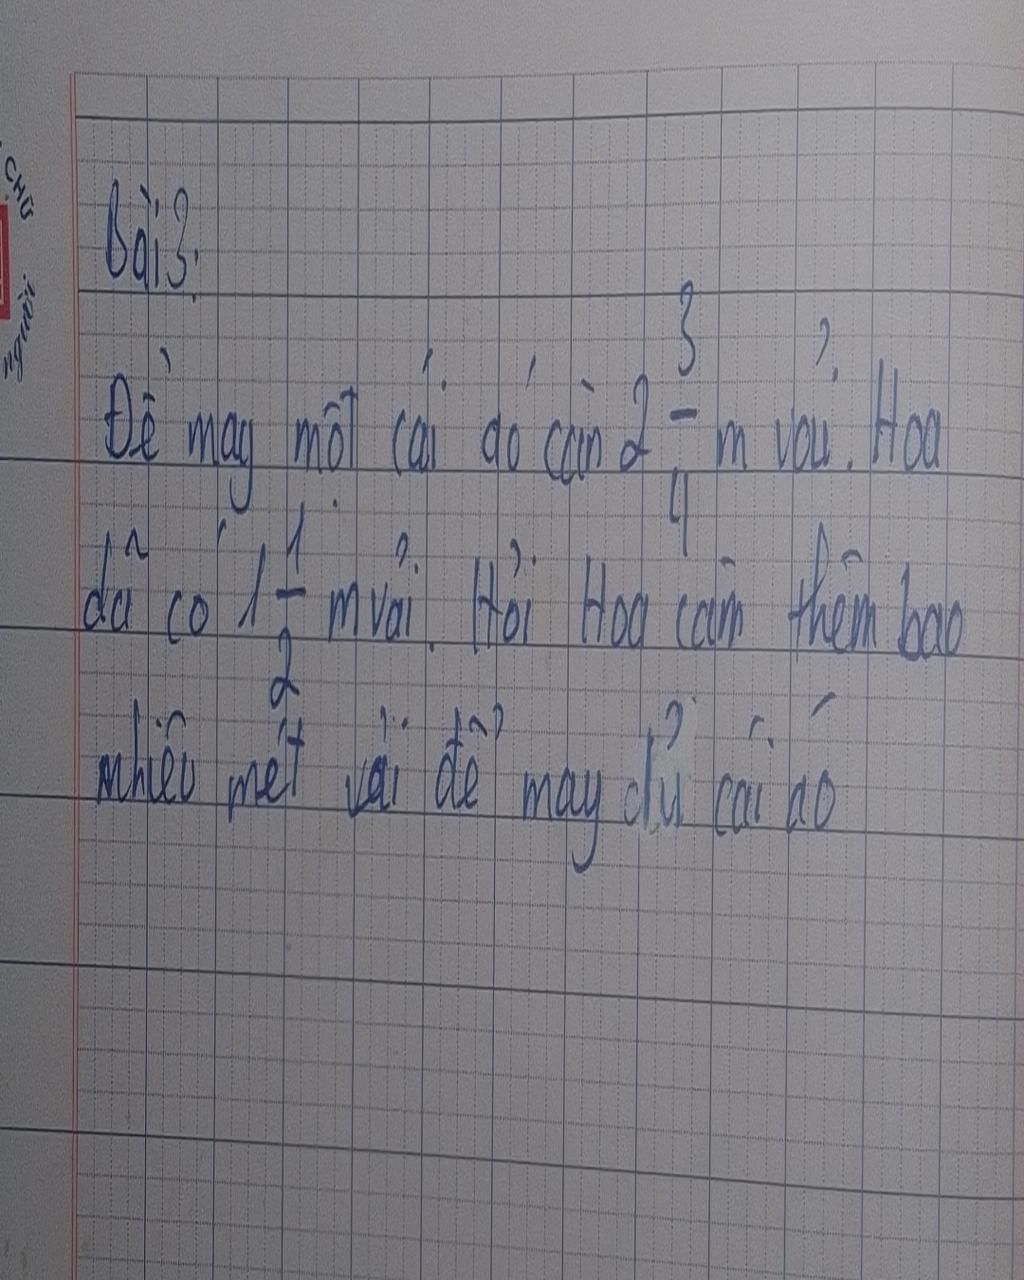 CHỮ
người
Bài 3:
Để may một cái áo cần 2 3/4 m vải. Hoa
đã có 1 1/2 m vải. Hỏi Hoa cần thêm bao
nhiêu mét vải để may đủ cái áo